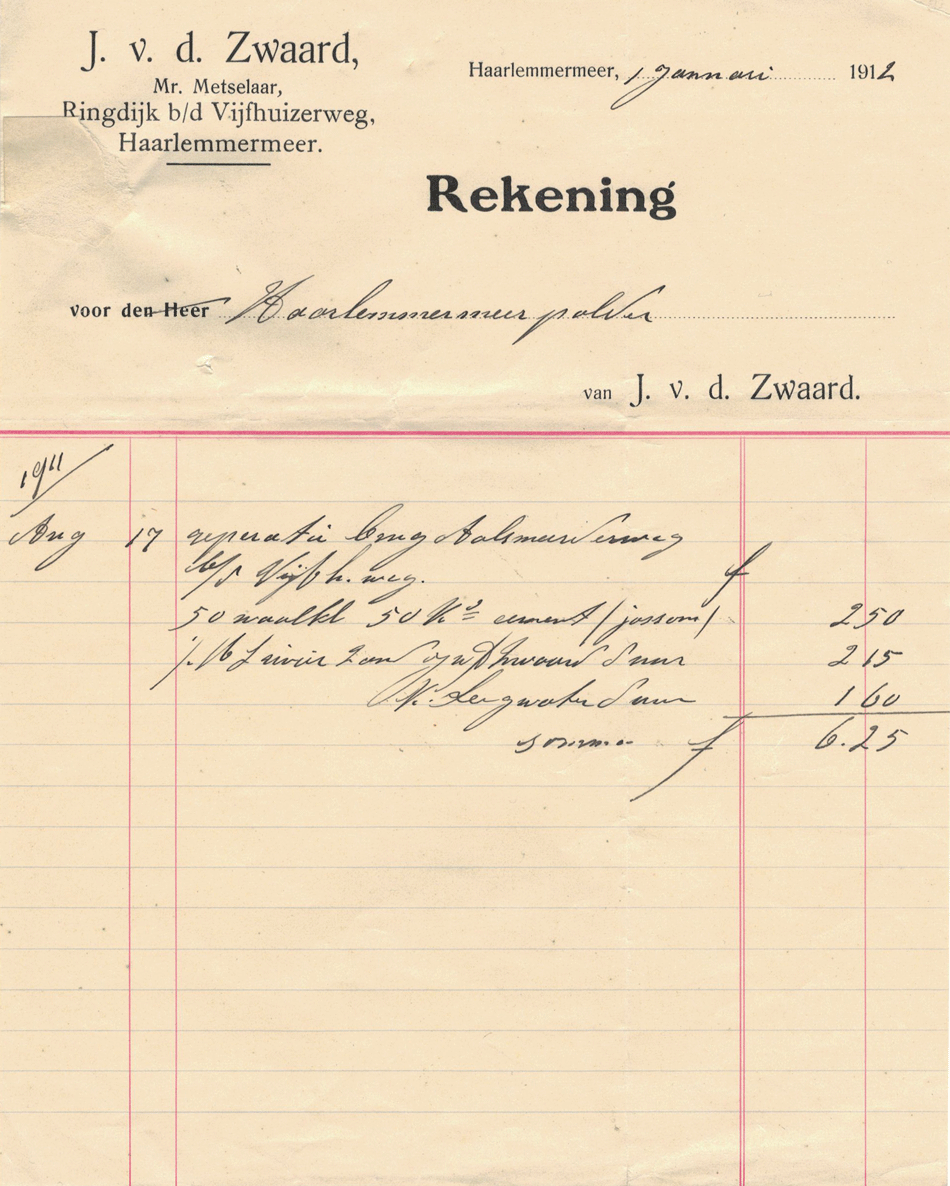 J. v. d. Zwaard,
Mr. Metselaar,
Ringdijk b/d Vijfhuizerweg,
Haarlemmermeer.
Haarlemmermeer, 1 Januari 1912
Rekening
voor den Heer Haarlemmermeerpolder
van J. v. d. Zwaard.
1911
Aug 17 reperatie brug Aalsmeerderweg
b/d Vijfh. weg. f
50 waalkl 50 K° cement 2 50
zand Zwaard 2 15
Leegwater 1 60
somma f 6.25